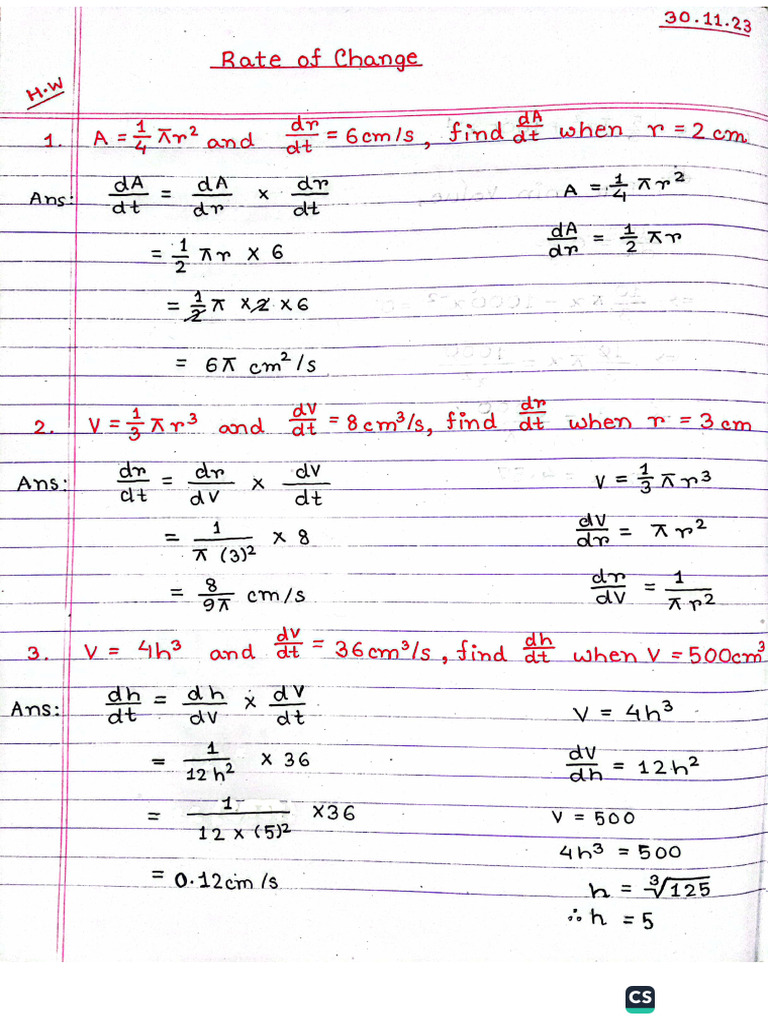 30.11.23
Rate of Change
H.W
1. A = 1/4 πr² and dr/dt = 6cm/s, find dA/dt when r = 2 cm
Ans: dA/dt = dA/dr × dr/dt
A = 1/4 πr²
= 1/2 πr × 6
dA/dr = 1/2 πr
= 1/2 π × 2 × 6
= 6π cm²/s
2. V = 1/3 πr³ and dV/dt = 8cm³/s, find dr/dt when r = 3 cm
Ans: dr/dt = dr/dV × dV/dt
V = 1/3 πr³
= 1/π(3)² × 8
dV/dr = πr²
= 8/9π cm/s
dr/dV = 1/πr²
3. V = 4h³ and dV/dt = 36cm³/s, find dh/dt when V = 500cm³
Ans: dh/dt = dh/dV × dV/dt
V = 4h³
= 1/12h² × 36
dV/dh = 12h²
= 1/12 × (5)² × 36
V = 500
4h³ = 500
= 0.12cm/s
h = ³√125
∴ h = 5
CS